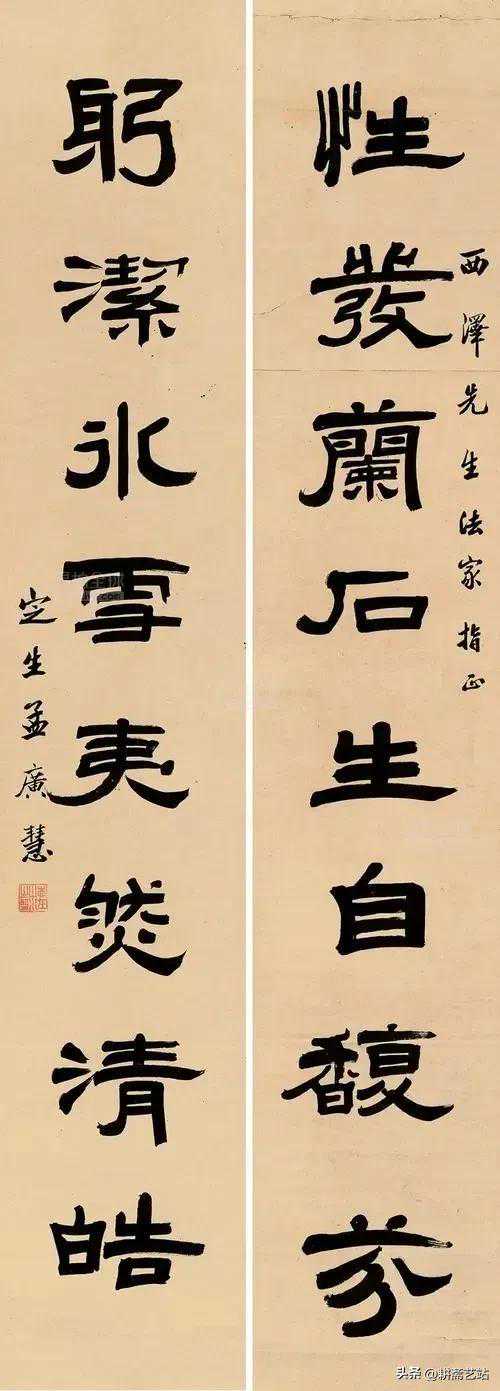 性發蘭石生自馥芬
西澤先生法家指正
躬潔冰雪夷然清皓
定生孟廣慧
头条@耕斋艺站